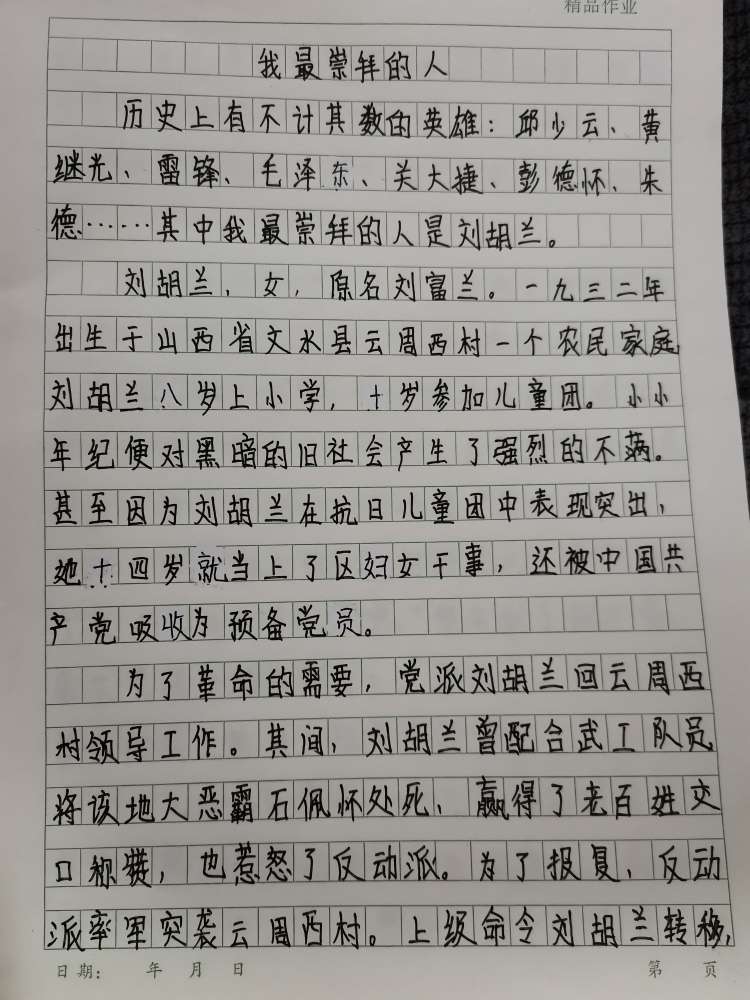 精品作业
我最崇拜的人
历史上有不计其数的英雄：邱少云、黄
继光、雷锋、毛泽东、关大捷、彭德怀、朱
德……其中我最崇拜的人是刘胡兰。
刘胡兰，女，原名刘富兰。一九三二年
出生于山西省文水县云周西村一个农民家庭
刘胡兰八岁上小学，十岁参加儿童团。小小
年纪便对黑暗的旧社会产生了强烈的不满。
甚至因为刘胡兰在抗日儿童团中表现突出，
她十四岁就当上了区妇女干事，还被中国共
产党吸收为预备党员。
为了革命的需要，党派刘胡兰回云周西
村领导工作。其间，刘胡兰曾配合武工队员
将该地大恶霸石佩怀处死、赢得了老百姓交
口称赞，也惹怒了反动派。为了报复，反动
派率军突袭云周西村。上级命令刘胡兰转移，
日期： 年 月 日 第 页